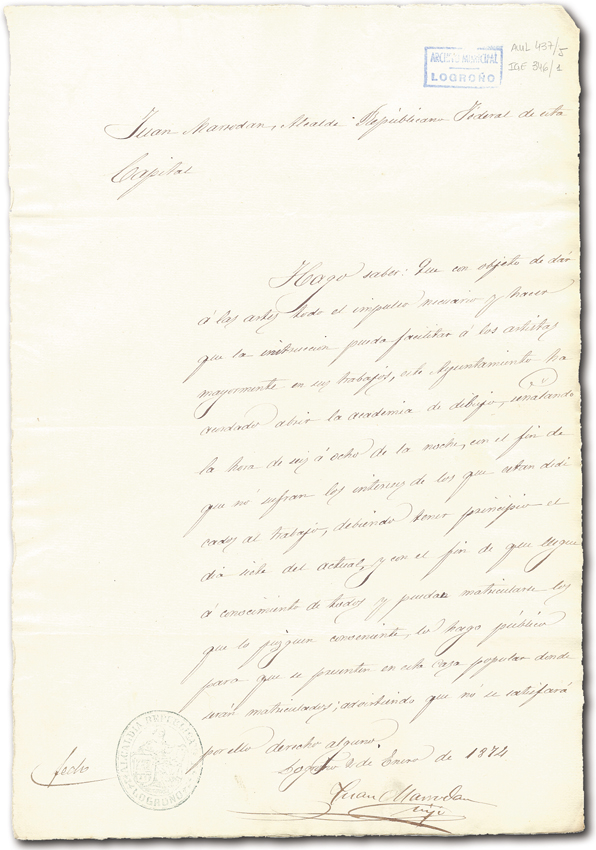 AUL 437/5
ARCHIVO MUNICIPAL
LOGROÑO
IGE 346/1
Juan Marrodan, Alcalde Républicano Federal de esta
Capital
Hago saber: Que con objeto de dár
á las artes todo el impulso necesario y hacer
que la instrucción pueda facilitar á los artistas
mayormente en sus trabajos, este Ayuntamiento ha
acordado abrir la academia de dibujo, señalando
la hora de seis á ocho de la noche, con el fin de
que nó sufran los intereses de los que estan dedi
cados al trabajo, debiendo tener principio el
dia siete del actual, y con el fin de que llegue
á conocimiento de todos y puedan matricularse los
que lo juzguen conveniente, lo hago público
para que se presenten en esta casa popular donde
serán matriculados; advirtiendo que nó se satisfará
por ello derecho alguno.
Logroño 2 de Enero de 1874
fecho
ALCALDIA REPUBLICANA
LOGROÑO
Juan Marrodan